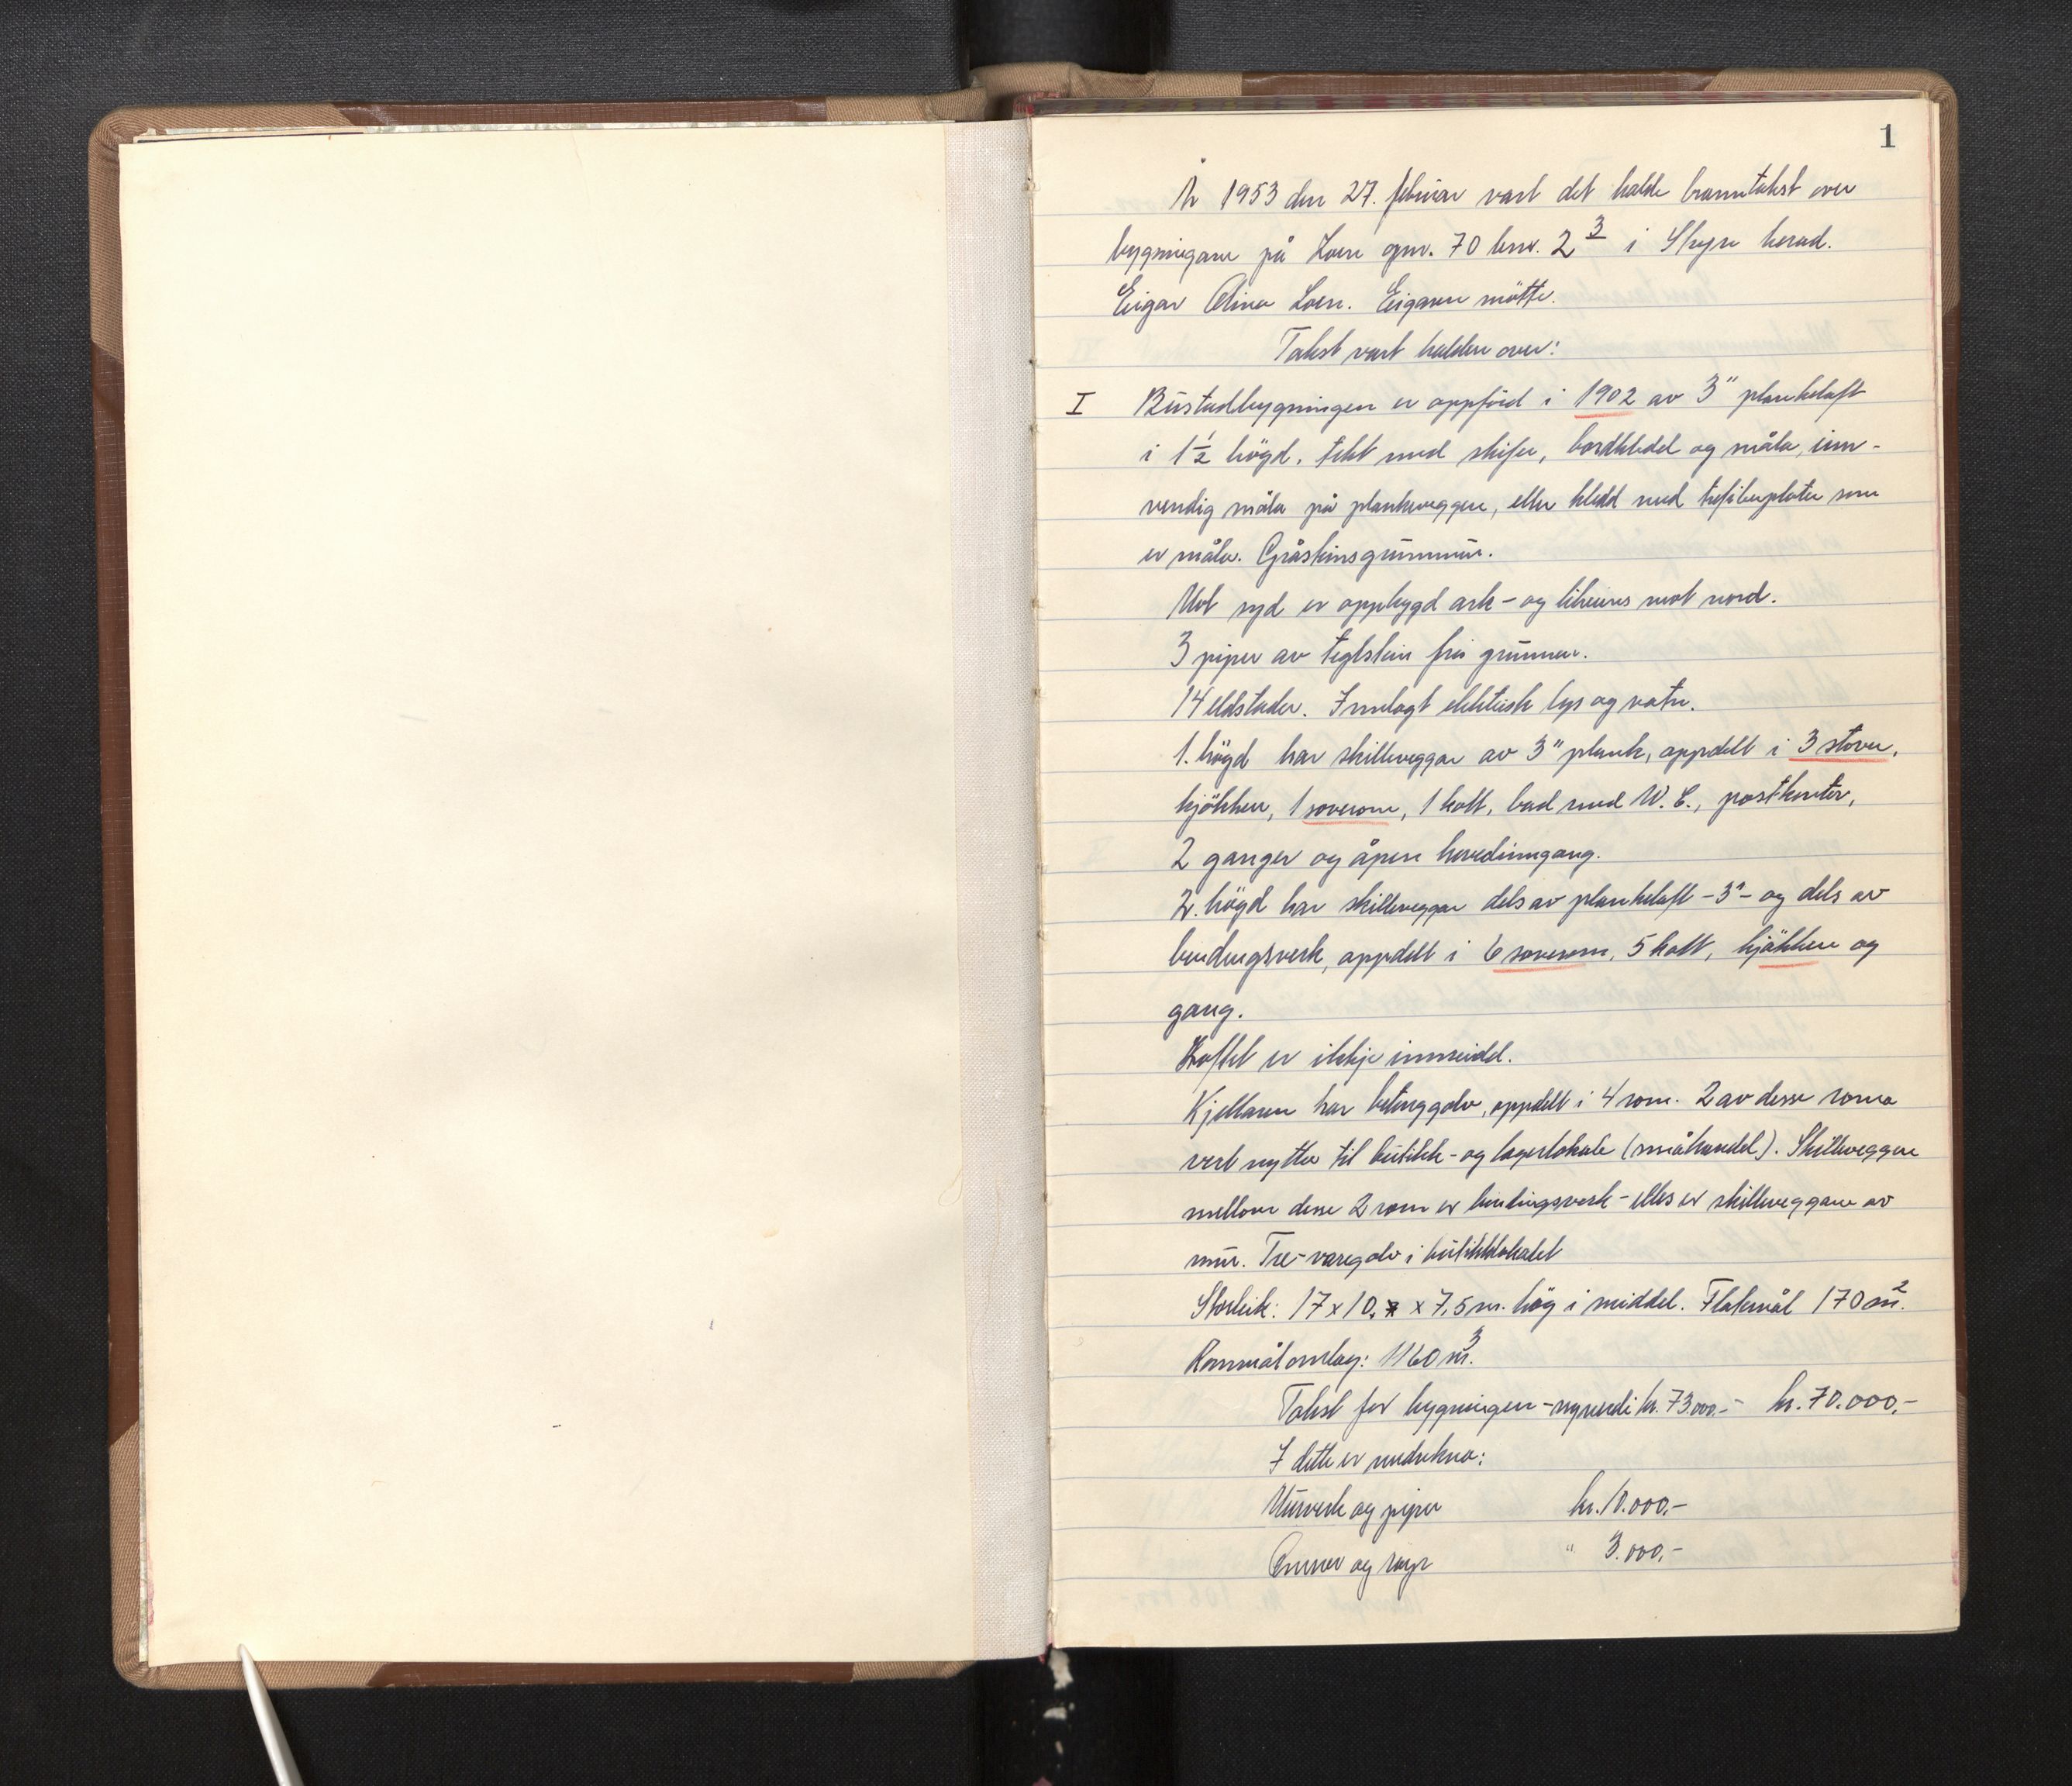 1
År 1953 den 27. februar vart det halde branntakst over
bygningane på Loen gnr. 70 bnr. 2 3 i Stryn herad.
Eigar Alina Loen. Eigaren møtte.
Takst vart halden over:
I Bustadbygningen er oppförd i 1902 av 3" plankelaft
i 1 1/2 högd, tekt med skifer, bordkledd og måla, inn-
vendig måla på plankeveggen, eller kledd med trefiberplater som
er måla. Gråsteinsgrunnmur.
Mot syd er oppbygd ark - og likeins mot nord.
3 piper av teglstein frå grunnen.
14 eldstader. Innlagt elektrisk lys og vatn.
1. högd har skilleveggar av 3" plank, oppdelt i 3 stover,
kjökken, 1 soverom, 1 kott, bad med W.C., postkontor,
2 ganger og åpen hovedinngang.
2. högd har skilleveggar dels av plankelaft - 3" - og dels av
bindingsverk, oppdelt i 6 soverom, 5 kott, kjökken og
gang.
Loftet er ikkje innreidd.
Kjellaren har betonggolv, oppdelt i 4 rom. 2 av desse romo
vert nytta til butikk - og lagerlokale (småhandel). Skilleveggen
mellom desse 2 rom er bindingsverk - elles er skilleveggane av
mur. Tre-varegolv i butikklokalet
Storleik: 17 x 10, x 7,5 m. høg i middel. Flatemål 170 m².
Rommål omlag: 1160 m³.
Takst for bygningen - nyverdi kr. 73.000.- kr. 70.000.-
I dette er medrekna:
Murverk og piper kr. 10.000.-
Omner og røyr " 3.000.-